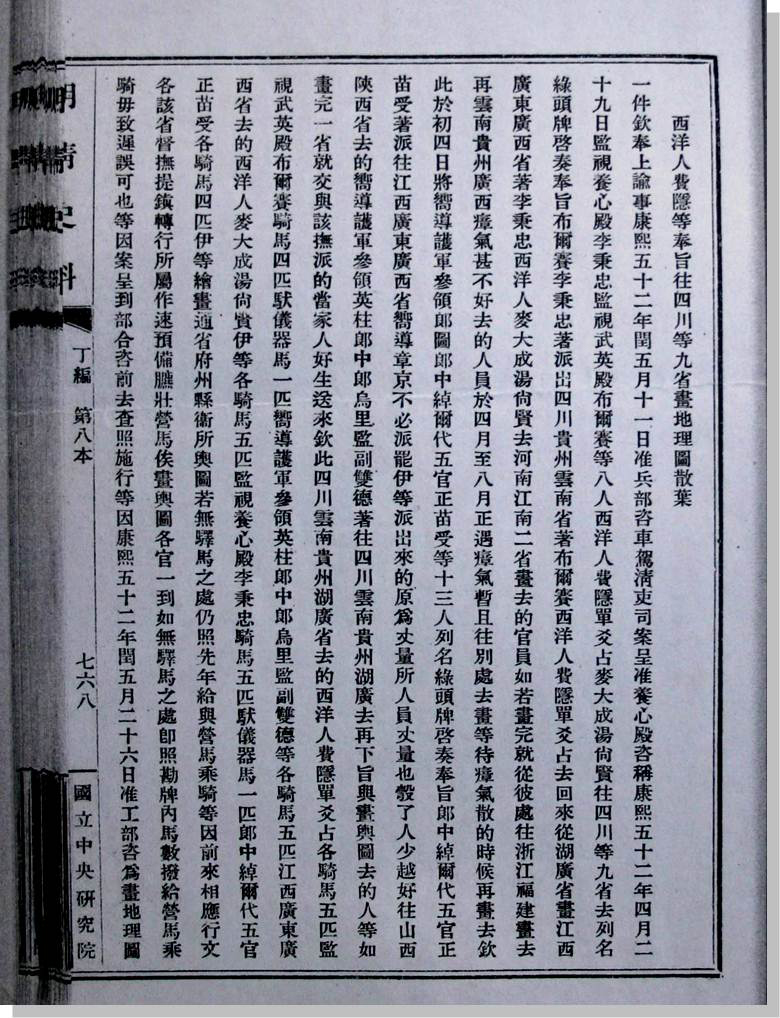 西洋人費隱等奉旨往四川等九省畫地理圖散葉
一件欽奉上諭事康熙五十二年閏五月十一日准兵部咨車駕清吏司案呈准養心殿咨稱康熙五十二年四月二
十九日監視養心殿李秉忠監視武英殿布爾賽等八人西洋人費隱單爻占麥大成湯尙賢往四川等九省去列名
綠頭牌啓奏奉旨布爾賽李秉忠著派出四川貴州雲南省著布爾賽西洋人費隱單爻占去回來從湖廣省畫江西
廣東廣西省著李秉忠西洋人麥大成湯尙賢去河南江南二省畫去的官員如若畫完就從彼處往浙江福建畫去
再雲南貴州廣西瘴氣甚不好去的人員於四月至八月正遇瘴氣暫且往別處去畫等待瘴氣散的時候再畫去欽
此於初四日將嚮導護軍參領郎圖郎中綽爾代五官正苗受等十三人列名綠頭牌啓奏奉旨郎中綽爾代五官正
苗受著派往江西廣東廣西省嚮導章京不必派罷伊等派出來的原爲丈量所人員丈量也彀了人少越好往山西
陝西省去的嚮導護軍參領英柱郎中郎烏里監副雙德著往四川雲南貴州湖廣去再下旨與畫輿圖去的人等如
畫完一省就交與該撫派的當家人好生送來欽此四川雲南貴州湖廣省去的西洋人費隱單爻占各騎馬五匹監
視武英殿布爾賽騎馬四匹馱儀器馬一匹嚮導護軍參領英柱郎中郎烏里監副雙德等各騎馬五匹江西廣東廣
西省去的西洋人麥大成湯尙賢伊等各騎馬五匹監視養心殿李秉忠騎馬五匹馱儀器馬一匹郎中綽爾代五官
正苗受各騎馬四匹伊等繪畫通省府州縣衞所輿圖若無驛馬之處仍照先年給與營馬乘騎等因前來相應行文
各該省督撫提鎭轉行所屬作速預備膘壯營馬俟畫輿圖各官一到如無驛馬之處卽照勘牌內馬數撥給營馬乘
騎毋致遲誤可也等因案呈到部合咨前去查照施行等因康熙五十二年閏五月二十六日准工部咨爲畫地理圖
明清史料
丁編 第八本
七六八
國立中央硏究院